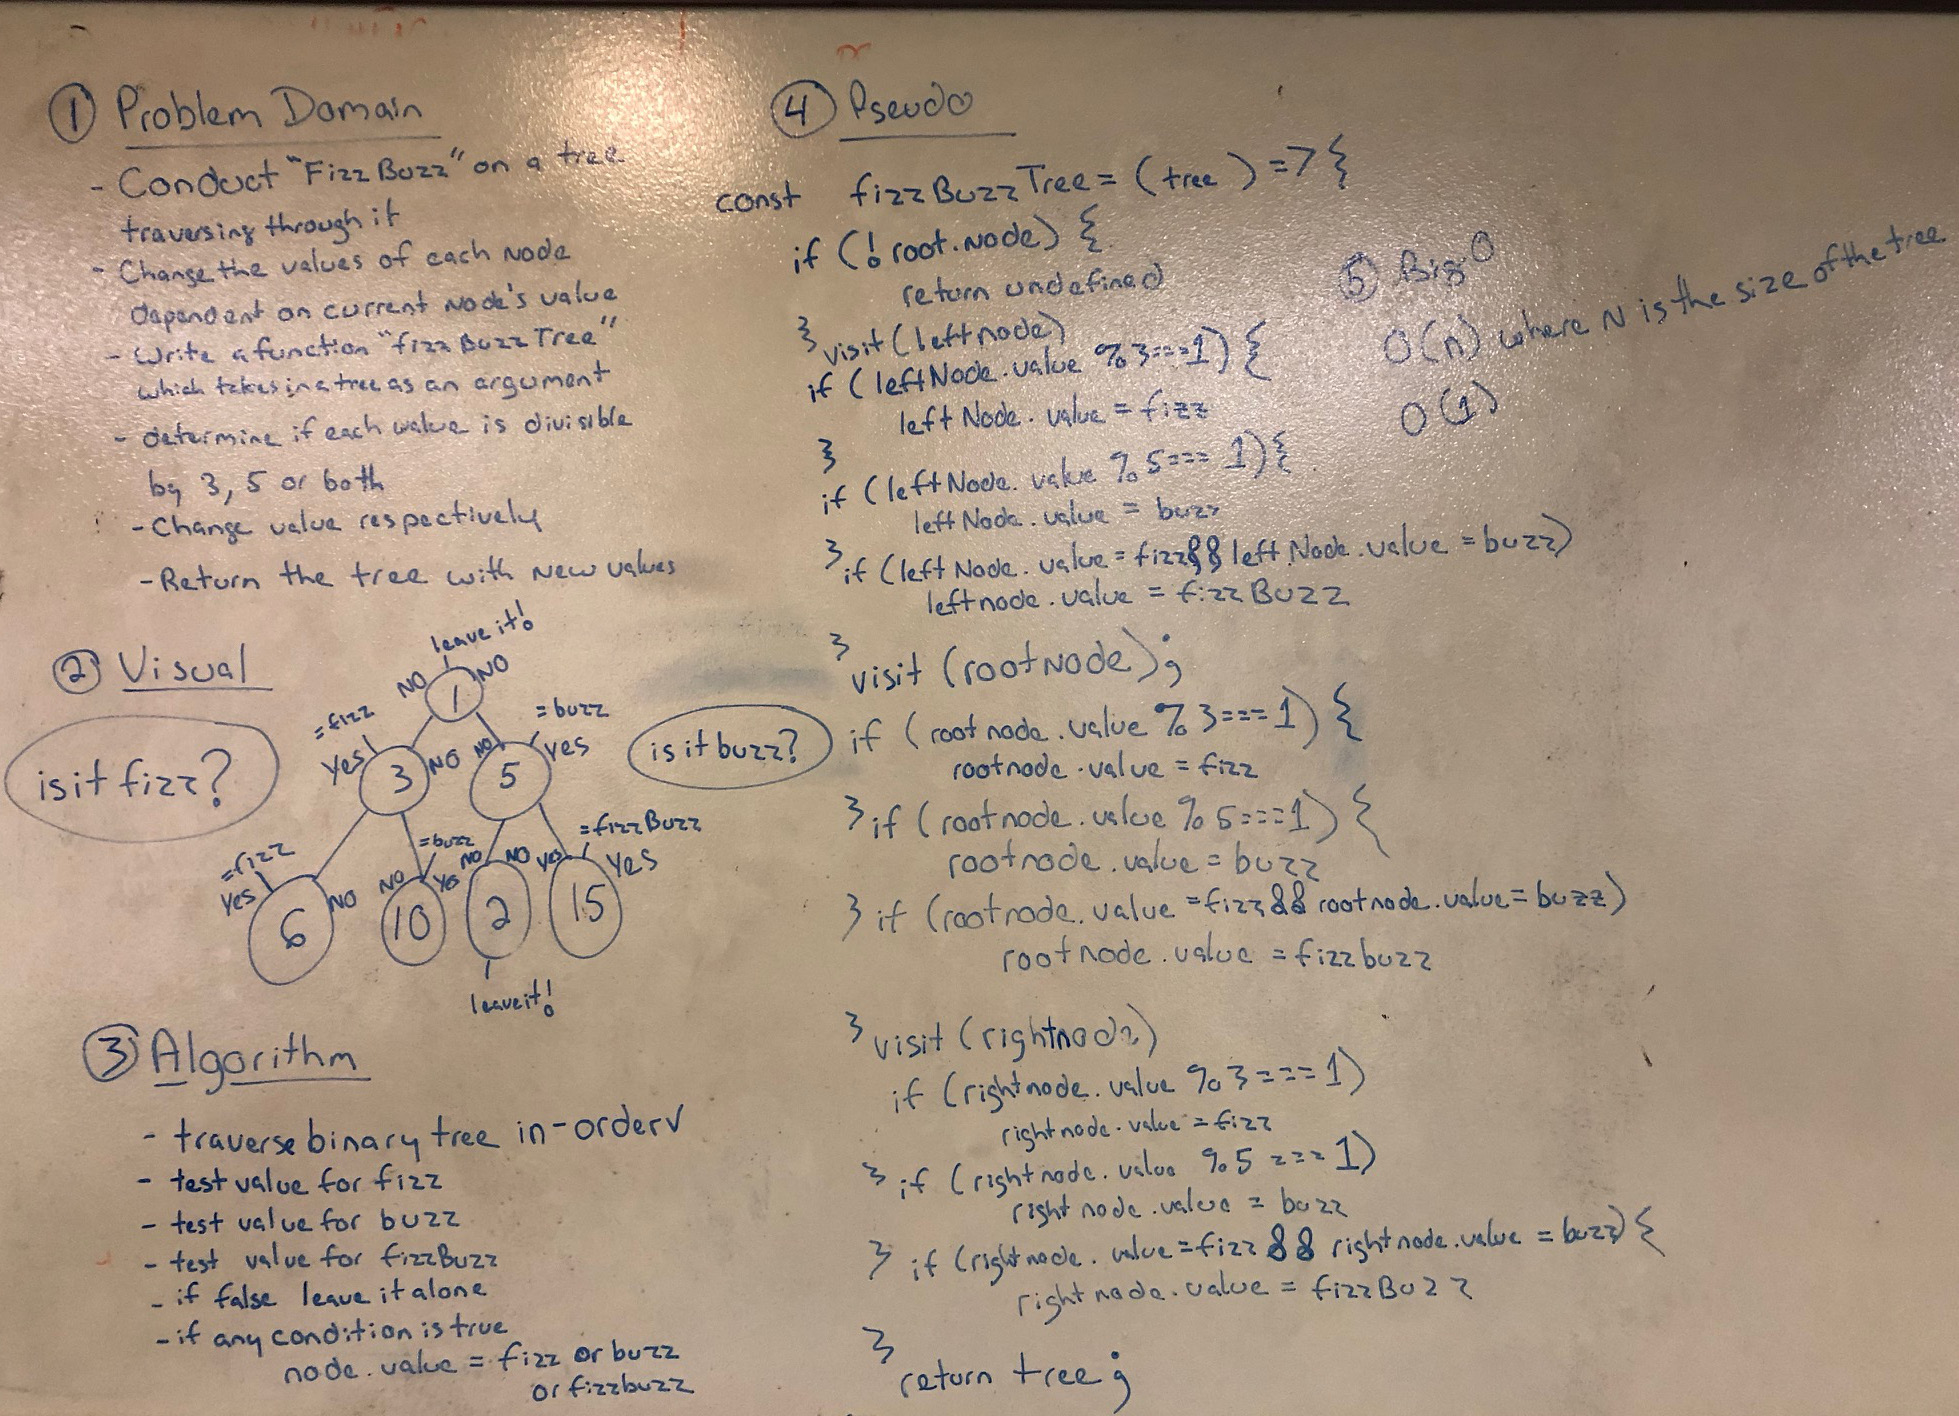 ① Problem Domain
- Conduct "FizzBuzz" on a tree
traversing through it
- Change the values of each Node
dependent on current Node's value
- Write a function "fizzBuzzTree"
which takes in a tree as an argument
- determine if each value is divisible
by 3, 5 or both
- Change value respectively
- Return the tree with New values
② Visual
leave it!
NO
NO
1
is it fizz?
=fizz
yes
3
NO
NO
5
=buzz
yes
is it buzz?
=fizz
yes
6
NO
=buzz
NO
yes
10
NO
NO
2
leave it!
=fizzBuzz
yes
yes
15
③ Algorithm
- traverse binary tree in-order√
- test value for fizz
- test value for buzz
- test value for fizzBuzz
- if false leave it alone
- if any condition is true
node.value = fizz or buzz
or fizzbuzz
④ Pseudo
const fizzBuzzTree = (tree) => {
if (! root.node) {
return undefined
} visit (leftnode)
if (leftNode.value % 3 === 1) {
leftNode.value = fizz
}
if (leftNode.value % 5 === 1) {
leftNode.value = buzz
} if (leftNode.value = fizz && leftNode.value = buzz)
leftnode.value = fizzBuzz
}
visit (rootNode);
if (rootnode.value % 3 === 1) {
rootnode.value = fizz
} if (rootnode.value % 5 === 1) {
rootnode.value = buzz
} if (rootnode.value = fizz && rootnode.value = buzz)
rootnode.value = fizzbuzz
} visit (rightnode)
if (rightnode.value % 3 === 1)
rightnode.value = fizz
} if (rightnode.value % 5 === 1)
rightnode.value = buzz
} if (rightnode.value = fizz && rightnode.value = buzz) {
rightnode.value = fizzBuzz
}
return tree;
⑤ Big O
O(n) where N is the size of the tree
O(1)